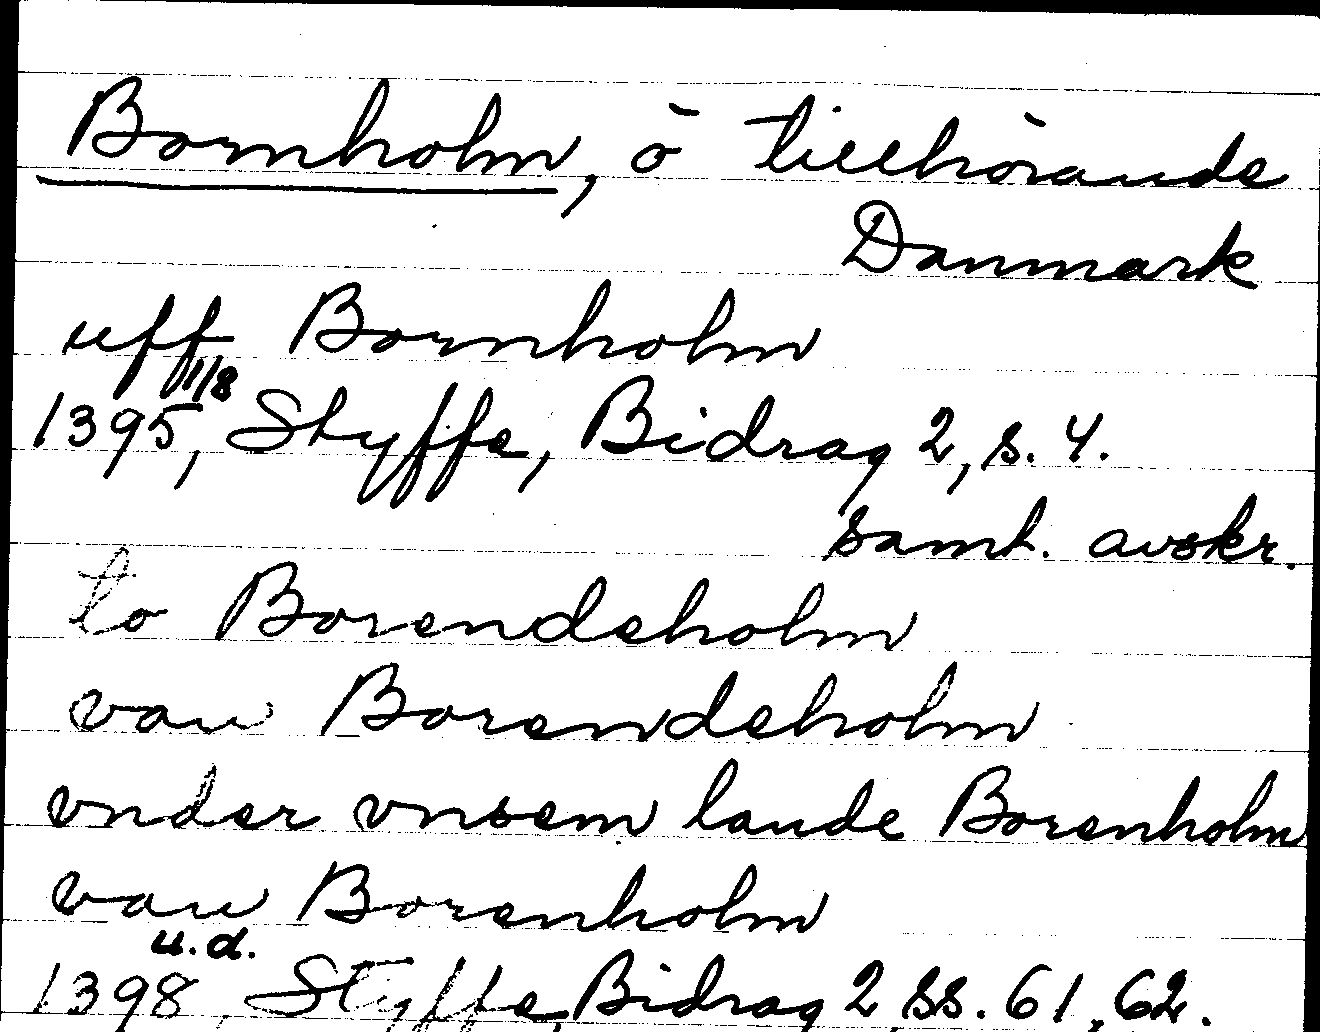 Bornholm, ö tillhörande
Danmark
uff Bornholm
1/8
1395, Styffe, Bidrag 2, s. 4.
samt. avskr.
to Borendeholm
van Borendeholm
vnder vnsem lande Borenholm
van Borenholm
u.d.
1398, Styffe, Bidrag 2, ss. 61, 62.